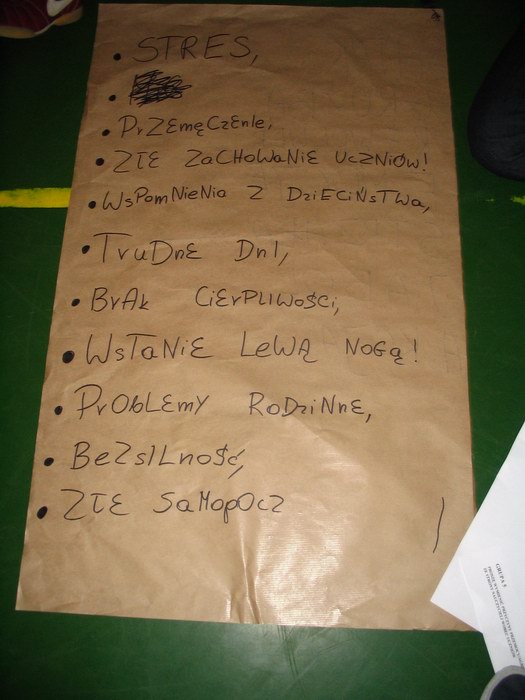 • STRES,
•
• PrZEmęCzEnIe,
• ZŁE ZaCHOWaNiE UCZNIÓW!
• WsPomNieNia Z DziECiŃsTWa,
• TruDnE DnI,
• BrAk CiErPLIWOŚCi,
• WsTaNiE LeWĄ NOGą!
• PrObLEmY RoDziNnE,
• BeZsILnoŚć,
• ZŁE SaMopOCZ
GRUPA 5